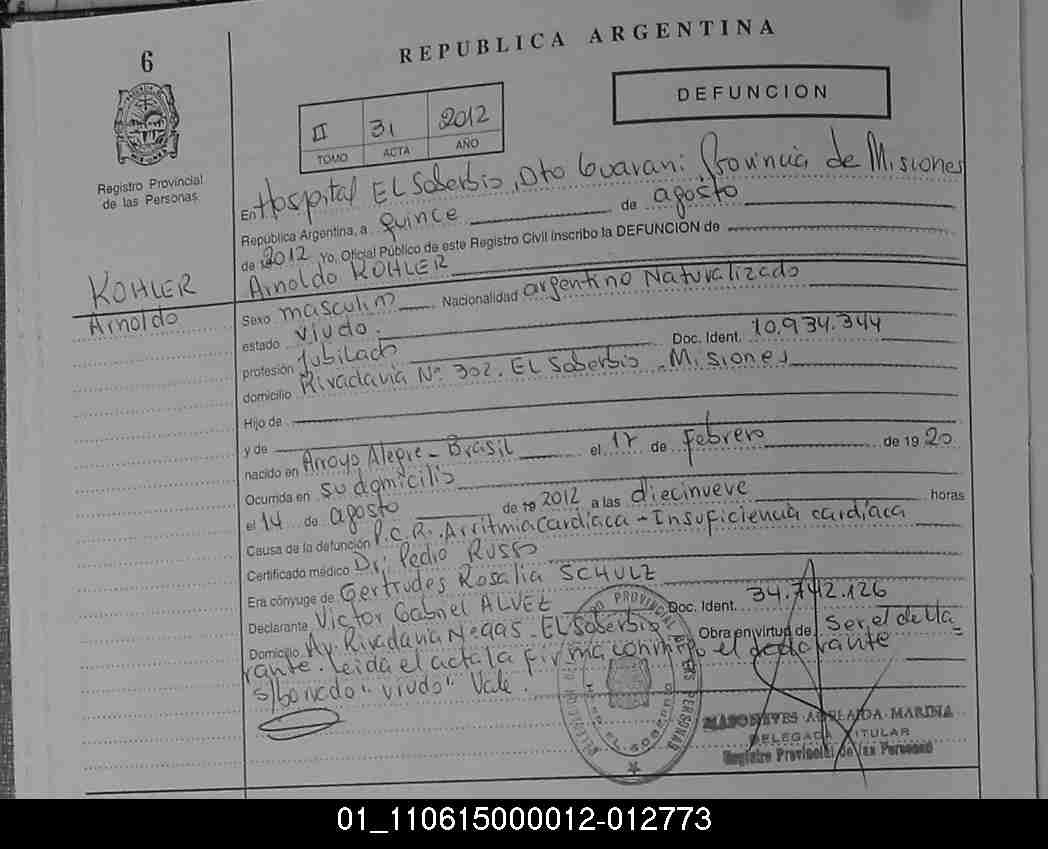 6
REPUBLICA ARGENTINA
DEFUNCION
II 31 2012
TOMO ACTA AÑO
Registro Provincial
de las Personas
En Hospital EL Soberbio, Dto Guarani, Provincia de Misiones
República Argentina, a quince de agosto
de 2012 Yo, Oficial Público de este Registro Civil inscribo la DEFUNCION de
Arnoldo KOHLER
KOHLER
Arnoldo
Sexo masculino Nacionalidad argentino Naturalizado
estado viudo.
profesión Jubilado Doc. Ident. 10.934.344
domicilio Rivadavia Nº 302. EL Soberbio - Misiones
Hijo de
y de
nacido en Arroyo Alegre - Brasil el 17 de febrero de 1920
Ocurrida en su domicilio
el 14 de agosto de 19 2012 a las diecinueve horas
Causa de la defunción P.C.R. Arritmia cardíaca - Insuficiencia cardíaca
Certificado médico Dr. Pedro RUSSO
Era cónyuge de Gertrudes Rosalia SCHULZ
Declarante Victor Gabriel ALVEZ Doc. Ident. 34.742.126
Domicilio Av. Rivadavia EL Soberbio Obra en virtud de Ser el decla-
rante. Leida el acta la firma conmigo el declarante
s/borrado "viudo" Vale.
REGISTRO PROVINCIAL DE LAS PERSONAS
EL SOBERBIO
ADELAIDA MARINA
DELEGADA TITULAR
Registro Provincial de las Personas
01_110615000012-012773